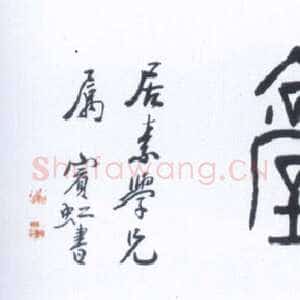 居素學兄
屬
賓虹書
Shufawang.CN